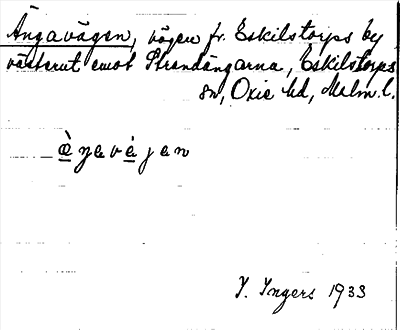 Ängavägen, vägen fr. Eskilstorps by
västerut emot Strandängarna, Eskilstorps
sn, Oxie hd, Malm.l.
I. Ingers 1933